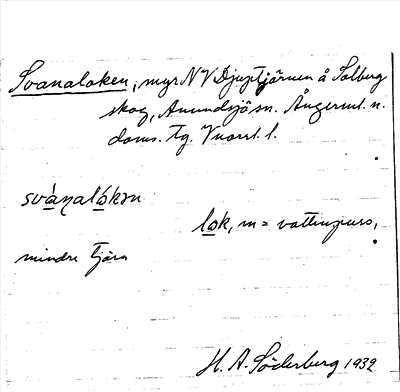 Svanaloken, myr NV Djuptjärnen å Solberg
skog, Anundsjö sn. Ångerml. n.
doms. tg. Vnorrl. l.
svánalókən
lok, m = vattenpuss,
mindre tjärn
H. A. Söderberg 1932